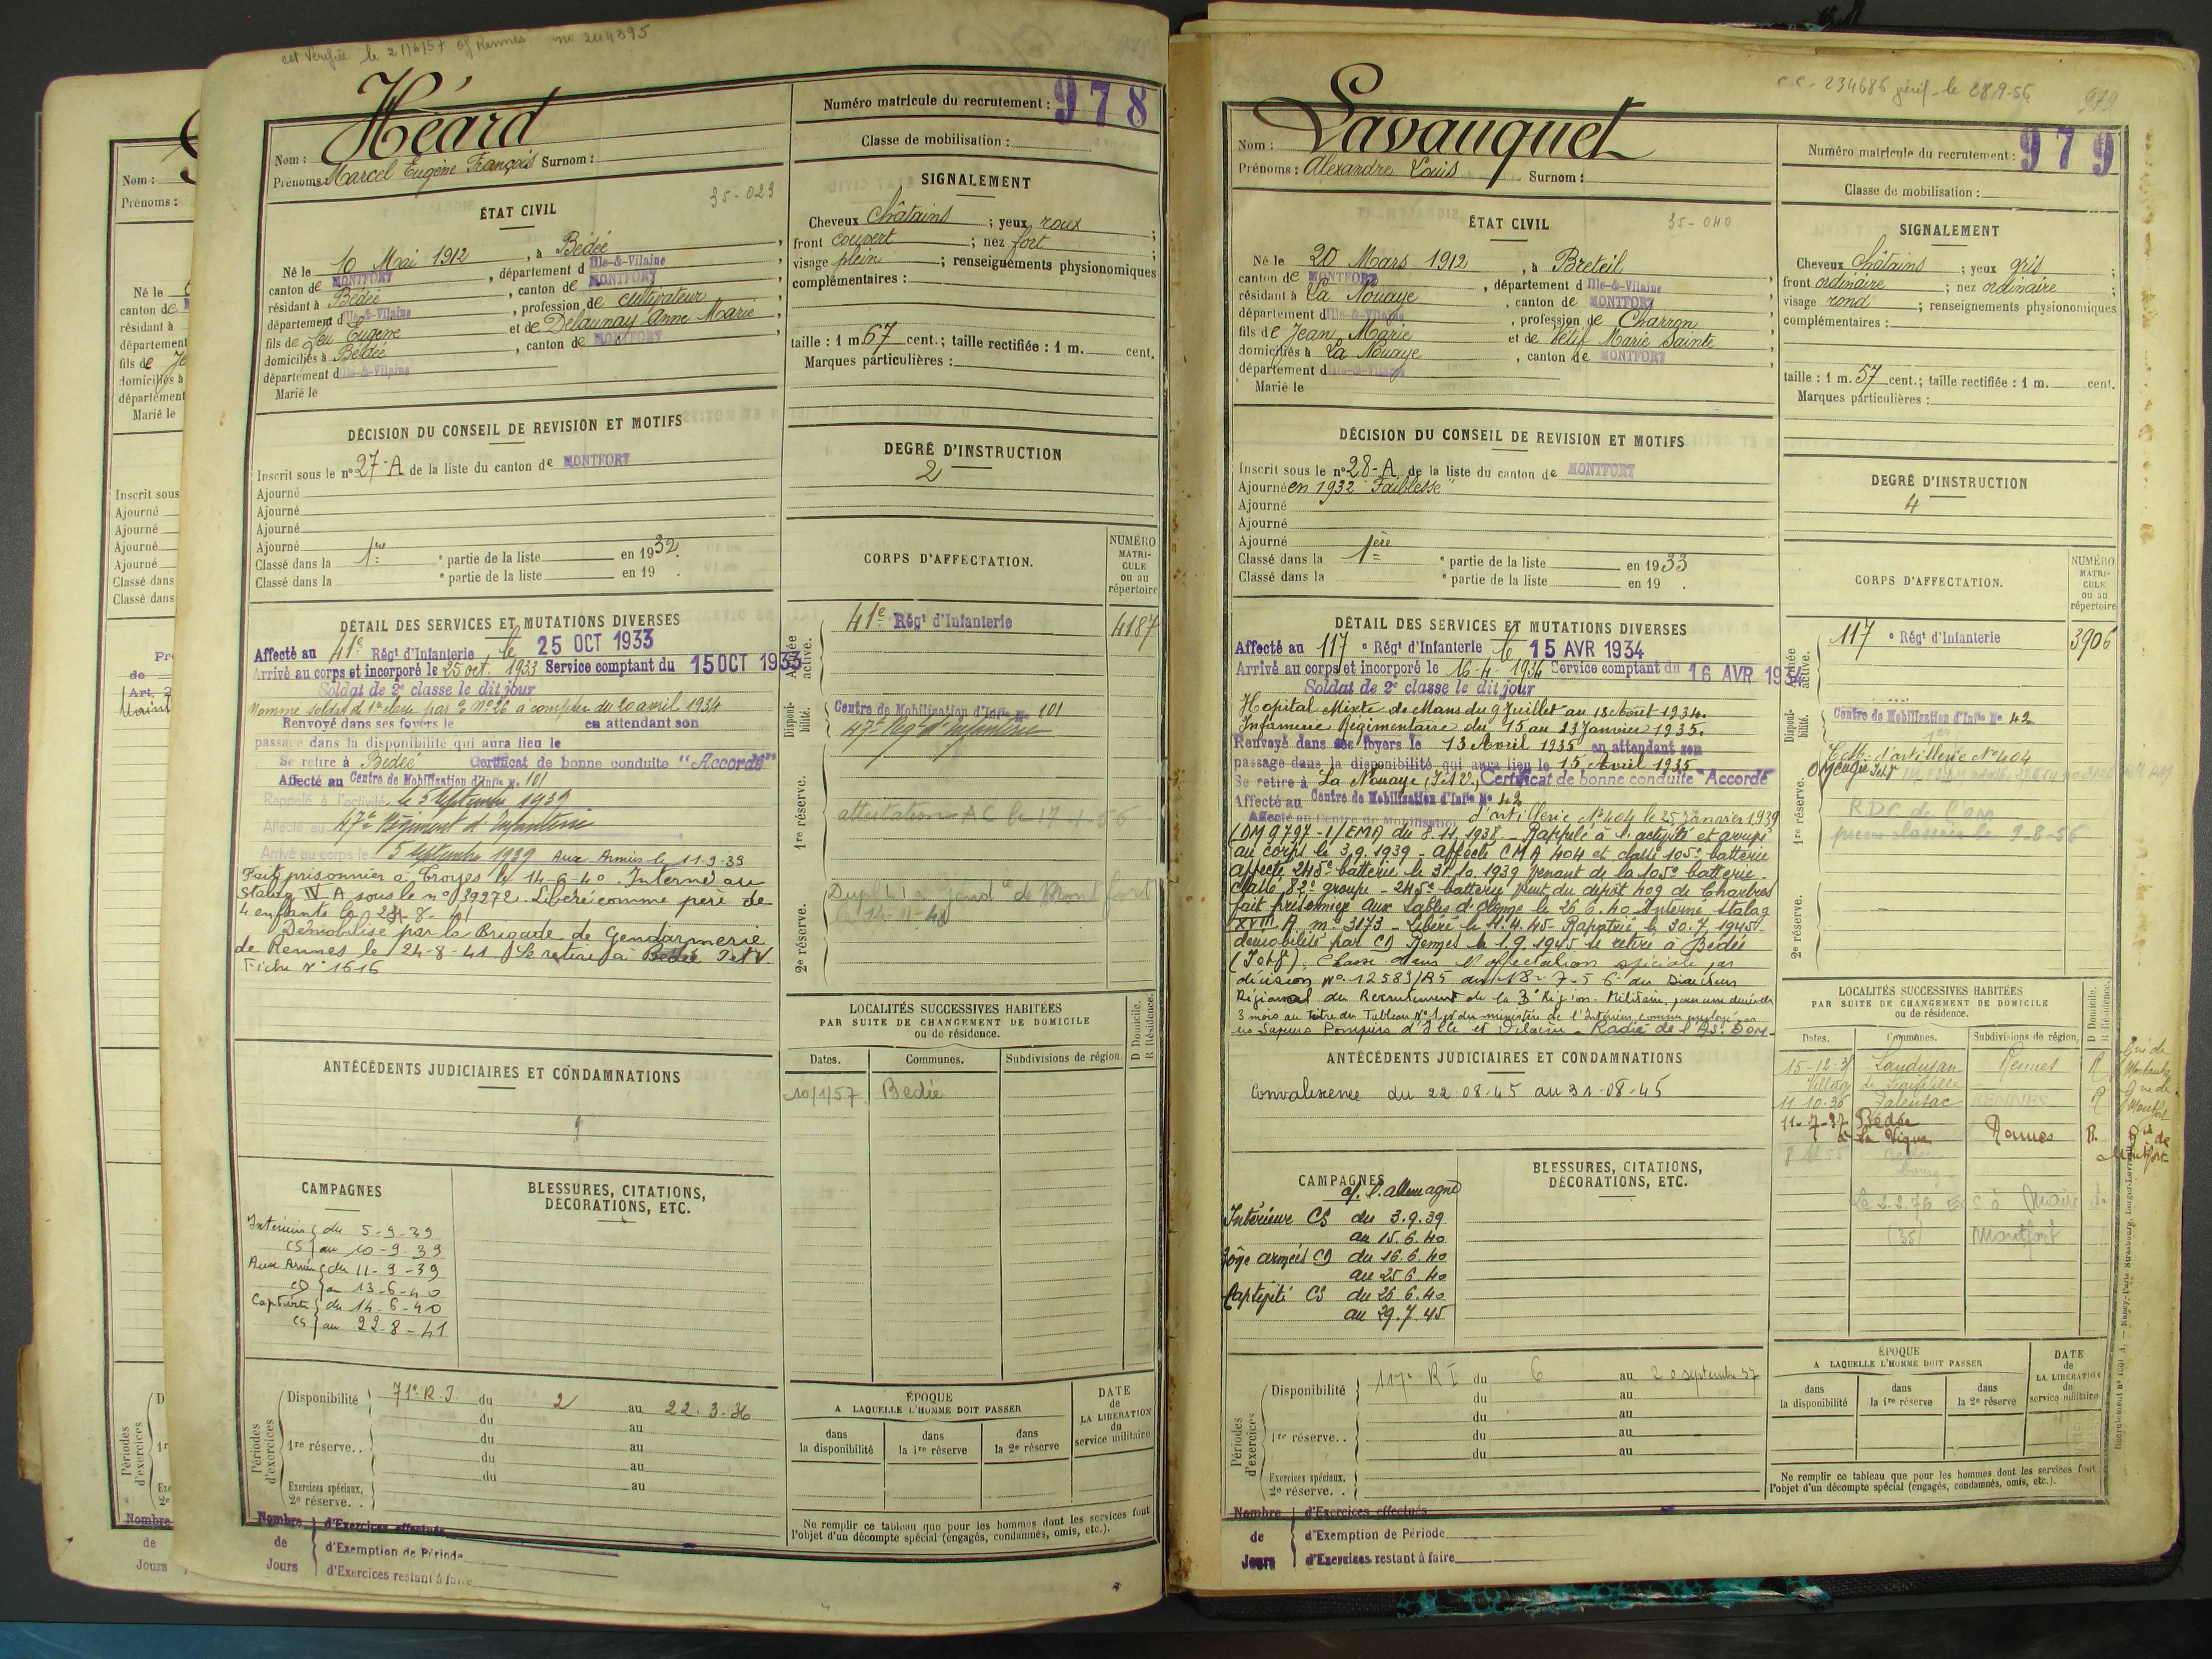 cet vérifié le 21/6/57 of Rennes no 244395
Héard
Nom :
Prénoms : Marcel Eugène François Surnom :
35-023
ÉTAT CIVIL
Né le 10 Mai 1912, à Bédée,
canton de MONTFORT, département d Ille-&-Vilaine,
résidant à Bédée, canton de MONTFORT,
département d Ille-&-Vilaine, profession de cultivateur,
fils de feu Eugène et de Delaunay Anne Marie,
domiciliés à Bédée, canton de MONTFORT,
département d Ille-&-Vilaine
Marié le
DÉCISION DU CONSEIL DE REVISION ET MOTIFS
Inscrit sous le n° 27-A de la liste du canton de MONTFORT
Ajourné
Ajourné
Ajourné
Ajourné
Classé dans la 1re e partie de la liste en 1932.
Classé dans la e partie de la liste en 19 .
DÉTAIL DES SERVICES ET MUTATIONS DIVERSES
Affecté au 41e Régt d'Infanterie, le 25 OCT 1933
Arrivé au corps et incorporé le 25 oct. 1933 Service comptant du 15 OCT 1933
Soldat de 2e classe le dit jour
Nommé soldat de 1e classe par O N° 26 à compter du 20 avril 1934
Renvoyé dans ses foyers le en attendant son
passage dans la disponibilité qui aura lieu le
Se retire à Bédée Certificat de bonne conduite "Accordé"
Affecté au Centre de Mobilisation d'Infie No 101
Rappelé à l'activité le 5 Septembre 1939
Affecté au 47e Régiment d'Infanterie
Arrivé au corps le 5 septembre 1939 Aux Armées le 11-9-39
Fait prisonnier à Troyes le 14-6-40 Interné au
Stalag IV A sous le n° 39272. Libéré comme père de
4 enfants le 24-8-41
Démobilisé par la Brigade de Gendarmerie
de Rennes le 24-8-41. Se retire à Bédée I et V.
Fiche N° 1616
ANTÉCÉDENTS JUDICIAIRES ET CONDAMNATIONS
CAMPAGNES
Intérieur du 5-9-39
CS au 10-9-39
Aux Armées du 11-9-39
CD au 13-6-40
Captivité du 14-6-40
CS au 22-8-41
BLESSURES, CITATIONS,
DÉCORATIONS, ETC.
Périodes d'exercices
Disponibilité 71e R.I. du 2 au 22.3.36
du au
1re réserve.. du au
du au
du au
Exercices spéciaux.
2e réserve. .
Nombre de Jours
d'Exercices effectués
d'Exemption de Période
d'Exercices restant à faire
Numéro matricule du recrutement : 978
Classe de mobilisation :
SIGNALEMENT
Cheveux châtains ; yeux roux ;
front couvert ; nez fort ;
visage plein ; renseignements physionomiques
complémentaires :
taille : 1 m. 67 cent.; taille rectifiée : 1 m. cent.
Marques particulières :
DEGRÉ D'INSTRUCTION
2
CORPS D'AFFECTATION.
NUMÉRO MATRICULE ou au répertoire
Armée active.
41e Régt d'Infanterie 4187
Disponibilité.
Centre de Mobilisation d'Infie No 101
47e Régt d'Infanterie
1re réserve.
attestation AC le 17-1-56
2e réserve.
Dupl L1 à gend ie de Montfort
le 14-11-42
LOCALITÉS SUCCESSIVES HABITÉES
PAR SUITE DE CHANGEMENT DE DOMICILE
ou de résidence.
D Domicile.
R Résidence.
Dates. Communes. Subdivisions de région.
10/1/57 Bédée
ÉPOQUE
A LAQUELLE L'HOMME DOIT PASSER
dans la disponibilité
dans la 1re réserve
dans la 2e réserve
DATE de LA LIBÉRATION du service militaire
Ne remplir ce tableau que pour les hommes dont les services font
l'objet d'un décompte spécial (engagés, condamnés, omis, etc.).
c.c. 234686 vérif. le 28-9-56
979
Lavauquet
Nom :
Prénoms : Alexandre Louis Surnom :
35-040
ÉTAT CIVIL
Né le 20 Mars 1912, à Breteil,
canton de MONTFORT, département d Ille-&-Vilaine,
résidant à La Nouaye, canton de MONTFORT,
département d Ille-&-Vilaine, profession de Charron,
fils de Jean Marie et de Pétif Marie Sainte,
domiciliés à La Nouaye, canton de MONTFORT,
département d Ille-&-Vilaine
Marié le
DÉCISION DU CONSEIL DE REVISION ET MOTIFS
Inscrit sous le n° 28-A de la liste du canton de MONTFORT
Ajourné en 1932 "Faiblesse"
Ajourné
Ajourné
Ajourné
Classé dans la 1ère e partie de la liste en 1933
Classé dans la e partie de la liste en 19 .
DÉTAIL DES SERVICES ET MUTATIONS DIVERSES
Affecté au 117 e Régt d'Infanterie le 15 AVR 1934
Arrivé au corps et incorporé le 16-4-1934 Service comptant du 16 AVR 1934
Soldat de 2e classe le dit jour
Hôpital Mixte du Mans du 9 Juillet au 18 Août 1934.
Infirmerie Régimentaire du 15 au 23 Janvier 1935.
Renvoyé dans ses foyers le 13 Avril 1935 en attendant son
passage dans la disponibilité qui aura lieu le 15 Avril 1935
Se retire à La Nouaye (I et V.) Certificat de bonne conduite "Accordé
Affecté au Centre de Mobilisation d'Infie No 42
Affecté au Centre de Mobilisation d'Artillerie N° 404 le 25 janvier 1939
(DM 9797-1/EMA du 8.11.1938 - Rappelé à l'activité et arrivé
au corps le 3.9.1939 - affecté CMA 404 et classé 105e batterie
affecté 245e batterie le 31.10.1939 venant de la 105e batterie
Classé 82e groupe - 245e batterie vient du dépôt 409 de Chartres
fait prisonnier aux Sables d'Olonne le 26 6.40 Interné Stalag
XVIII A n° 3173 - Libéré le 4.4.45 - Rapatrié le 30.7.1945 -
démobilisé par CD Rennes le 1.9.1945 se retire à Bédée
(I et V). Classé dans l'affectation spéciale par
décision N° 12583/R5 du 18-7-56 du Directeur
Régional du Recrutement de la 3e Région Militaire, pour une durée de
3 mois au titre du Tableau N° 1 et du ministère de l'Intérieur comme employé
les Sapeurs Pompiers d'Ille et Vilaine - Radié de l'AS.
ANTÉCÉDENTS JUDICIAIRES ET CONDAMNATIONS
Convalescence du 22-08-45 au 31-08-45
CAMPAGNES
c/. l'allemagne
Intérieure CS du 3.9.39
au 15.6.40
Zône armées CD du 16.6.40
au 25 6.40
Captivité CS du 26.6.40
au 29.7.45
BLESSURES, CITATIONS,
DÉCORATIONS, ETC.
Périodes d'exercices
Disponibilité 117e R I du 6 au 20 septembre 37
du au
du au
1re réserve.. du au
du au
Exercices spéciaux.
2e réserve. .
Nombre de Jours
d'Exercices effectués
d'Exemption de Période
d'Exercices restant à faire
Numéro matricule du recrutement : 979
Classe de mobilisation :
SIGNALEMENT
Cheveux châtains ; yeux gris ;
front ordinaire ; nez ordinaire ;
visage rond ; renseignements physionomiques
complémentaires :
taille : 1 m. 57 cent.; taille rectifiée : 1 m. cent.
Marques particulières :
DEGRÉ D'INSTRUCTION
4
CORPS D'AFFECTATION.
NUMÉRO MATRICULE ou au répertoire
Armée active.
117 e Régt d'Infanterie 3906
Disponibilité.
Centre de Mobilisation d'Infie No 42
C.M. d'artillerie N° 404
1re réserve.
RDC de l'
9-8-56
2e réserve.
LOCALITÉS SUCCESSIVES HABITÉES
PAR SUITE DE CHANGEMENT DE DOMICILE
ou de résidence.
D Domicile.
R Résidence.
Dates. Communes. Subdivisions de région.
15-12-35 Landujan Rennes R
Village de
11-10-36 Talensac RENNES R
11-7-37 Bédée
La Vigne Rennes R.
Le 2.2.76 C à Maire de
(35) Montfort
ÉPOQUE
A LAQUELLE L'HOMME DOIT PASSER
dans la disponibilité
dans la 1re réserve
dans la 2e réserve
DATE de LA LIBÉRATION du service militaire
Ne remplir ce tableau que pour les hommes dont les services font
l'objet d'un décompte spécial (engagés, condamnés, omis, etc.).
Nom :
Prénoms :
Né le
canton de
résidant à
département
fils de
domiciliés à
département
Marié le
Inscrit sous
Ajourné
Ajourné
Ajourné
Ajourné
Classé dans
Classé dans
Périodes d'exercices
Nombre
de
Jours